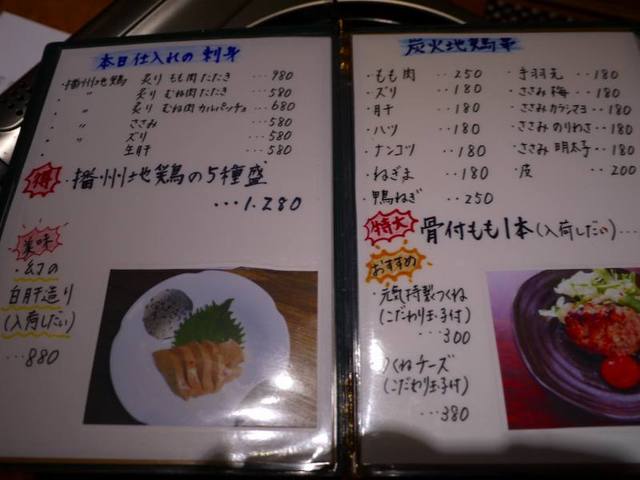 本日仕入れの刺身
・播州地鶏 炙りもも肉たたき …980
〃 炙りむね肉たたき …580
〃 炙りむね肉カルパッチョ …680
〃 ささみ …580
〃 ズリ …580
〃 生肝 …580
得 ・播州地鶏の5種盛
…1.280
美味
・幻の
白肝造り
(入荷しだい)
…880
炭火地鶏串
・もも肉 ‥250
・ズリ ‥180
・肝 ‥180
・ハツ ‥180
・ナンコツ ‥180
・ねぎま ‥180
・鴨ねぎ ‥250
・手羽元 ‥180
・ささみ梅 ‥180
・ささみカラシマヨ ‥180
・ささみのりわさ ‥180
・ささみ明太子 ‥180
・皮 ‥200
特大 骨付もも1本(入荷しだい)…
おすすめ
・元気特製つくね
(こだわり玉子付)
…300
つくねチーズ
(こだわり玉子付)
…380